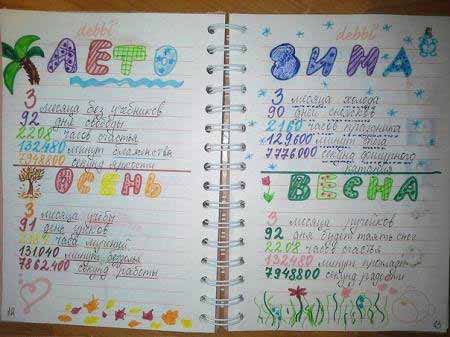 debbi
ЛЕТО
3
месяца без учебников
92 дня свободы
2208 часов счастья
132480 минут блаженства
7948800 секунд
ОСЕНЬ
3
месяца учёбы
91 день
2184 часа мучений
131040 минут
7862400 секунд работы
12
debbi
ЗИМА
3 месяца холода
90 дней снежков
2160 часов праздника
129600 минут
7776000 секунд
катания
ВЕСНА
3 месяца ручейков
92 дня будет таять снег
2208 часов счастья
132480 минут
7948800 секунд радости
13